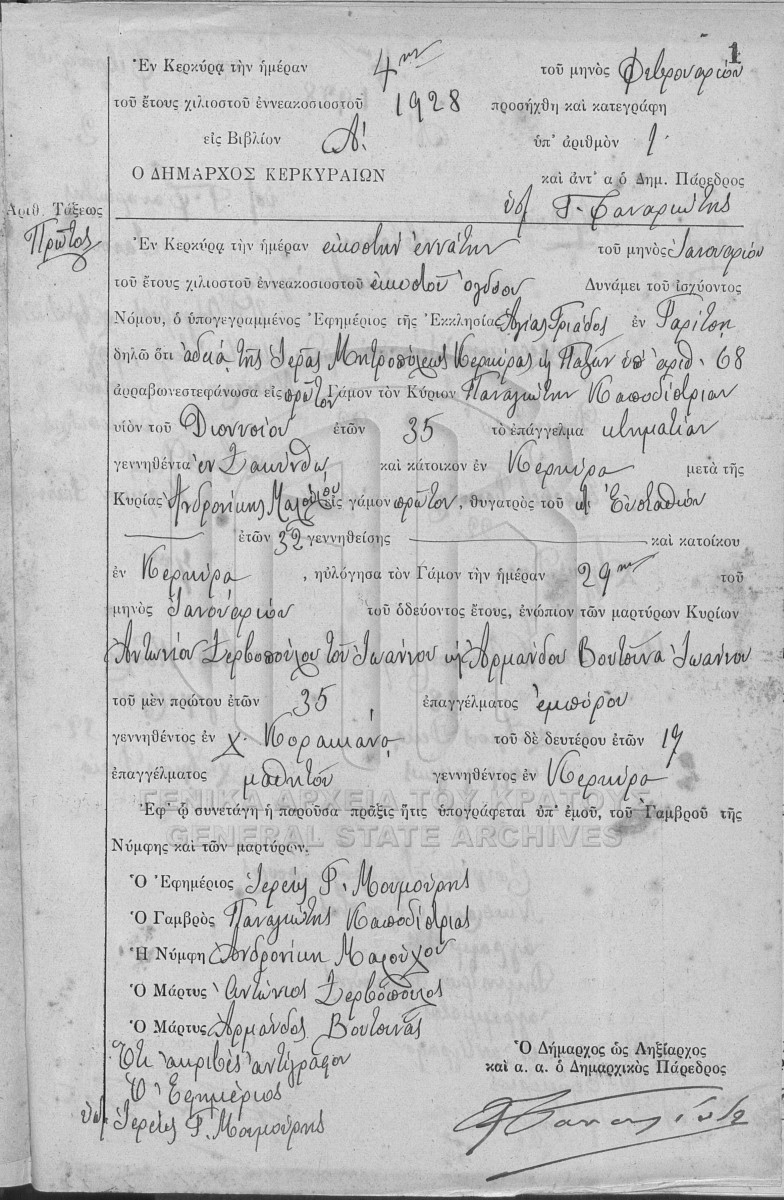 1
Ἐν Κερκύρᾳ τὴν ἡμέραν 4ην τοῦ μηνὸς Φεβρουαρίου
τοῦ ἔτους χιλιοστοῦ ἐννεακοσιοστοῦ 1928 προσήχθη καὶ κατεγράφη
εἰς Βιβλίον Α! ὑπ' ἀριθμὸν 1
Ο ΔΗΜΑΡΧΟΣ ΚΕΡΚΥΡΑΙΩΝ καὶ ἀντ' α ὁ Δημ. Πάρεδρος
Ἀριθ. Τάξεως
Πρῶτος
Ἐν Κερκύρᾳ τὴν ἡμέραν εἰκοστὴν ἐννάτην τοῦ μηνὸς Ἰανουαρίου
τοῦ ἔτους χιλιοστοῦ ἐννεακοσιοστοῦ εἰκοστοῦ ὀγδόου Δυνάμει τοῦ ἰσχύοντος
Νόμου, ὁ ὑπογεγραμμένος Ἐφημέριος τῆς Ἐκκλησίας Ἁγίας Τριάδος ἐν Γαρίτσῃ
δηλῶ ὅτι ἀδείᾳ τῆς Ἱερᾶς Μητροπόλεως Κερκύρας κ Παξῶν ὑπ' ἀριθ. 68
ἀρραβωνεστεφάνωσα εἰς πρῶτον Γάμον τὸν Κύριον Παναγιώτην Καποδίστριαν
υἱὸν τοῦ Διονυσίου ἐτῶν 35 τὸ ἐπάγγελμα κτηματίαν
γεννηθέντα ἐν Ζακύνθῳ καὶ κάτοικον ἐν Κερκύρᾳ μετὰ τῆς
Κυρίας Ἀνδρονίκης Μαρούχου εἰς γάμον πρῶτον, θυγατρὸς τοῦ Εὐσταθίου
ἐτῶν 32 γεννηθείσης καὶ κατοίκου
ἐν Κερκύρᾳ, ηὐλόγησα τὸν Γάμον τὴν ἡμέραν 29ην τοῦ
μηνὸς Ἰανουαρίου τοῦ ὁδεύοντος ἔτους, ἐνώπιον τῶν μαρτύρων Κυρίων
Ἀντωνίου Ζερβοπούλου τοῦ Ἰωάννου κ Ἀρμάνδου Βουτσινᾶ Ἰωάννου
τοῦ μὲν πρώτου ἐτῶν 35 ἐπαγγέλματος ἐμπόρου
γεννηθέντος ἐν Χ. Κορακιάνᾳ τοῦ δὲ δευτέρου ἐτῶν 17
ἐπαγγέλματος μαθητοῦ γεννηθέντος ἐν Κερκύρᾳ
Ἐφ' ᾧ συνετάγη ἡ παροῦσα πρᾶξις ἥτις ὑπογράφεται ὑπ' ἐμοῦ, τοῦ Γαμβροῦ τῆς
Νύμφης καὶ τῶν μαρτύρων.
ΓΕΝΙΚΑ ΑΡΧΕΙΑ ΤΟΥ ΚΡΑΤΟΥΣ
GENERAL STATE ARCHIVES
Ὁ Ἐφημέριος Ἱερεὺς Γ. Μουμούρης
Ὁ Γαμβρὸς Παναγιώτης Καποδίστριας
Ἡ Νύμφη Ἀνδρονίκη Μαρούχου
Ὁ Μάρτυς Ἀντώνιος Ζερβόπουλος
Ὁ Μάρτυς Ἀρμάνδος Βουτσινᾶς
Ὅτι ἀκριβὲς ἀντίγραφον
Ὁ Ἐφημέριος
ὑπ. Ἱερεὺς Γ. Μουμούρης
Ὁ Δήμαρχος ὡς Ληξίαρχος
καὶ α. α. ὁ Δημαρχικὸς Πάρεδρος